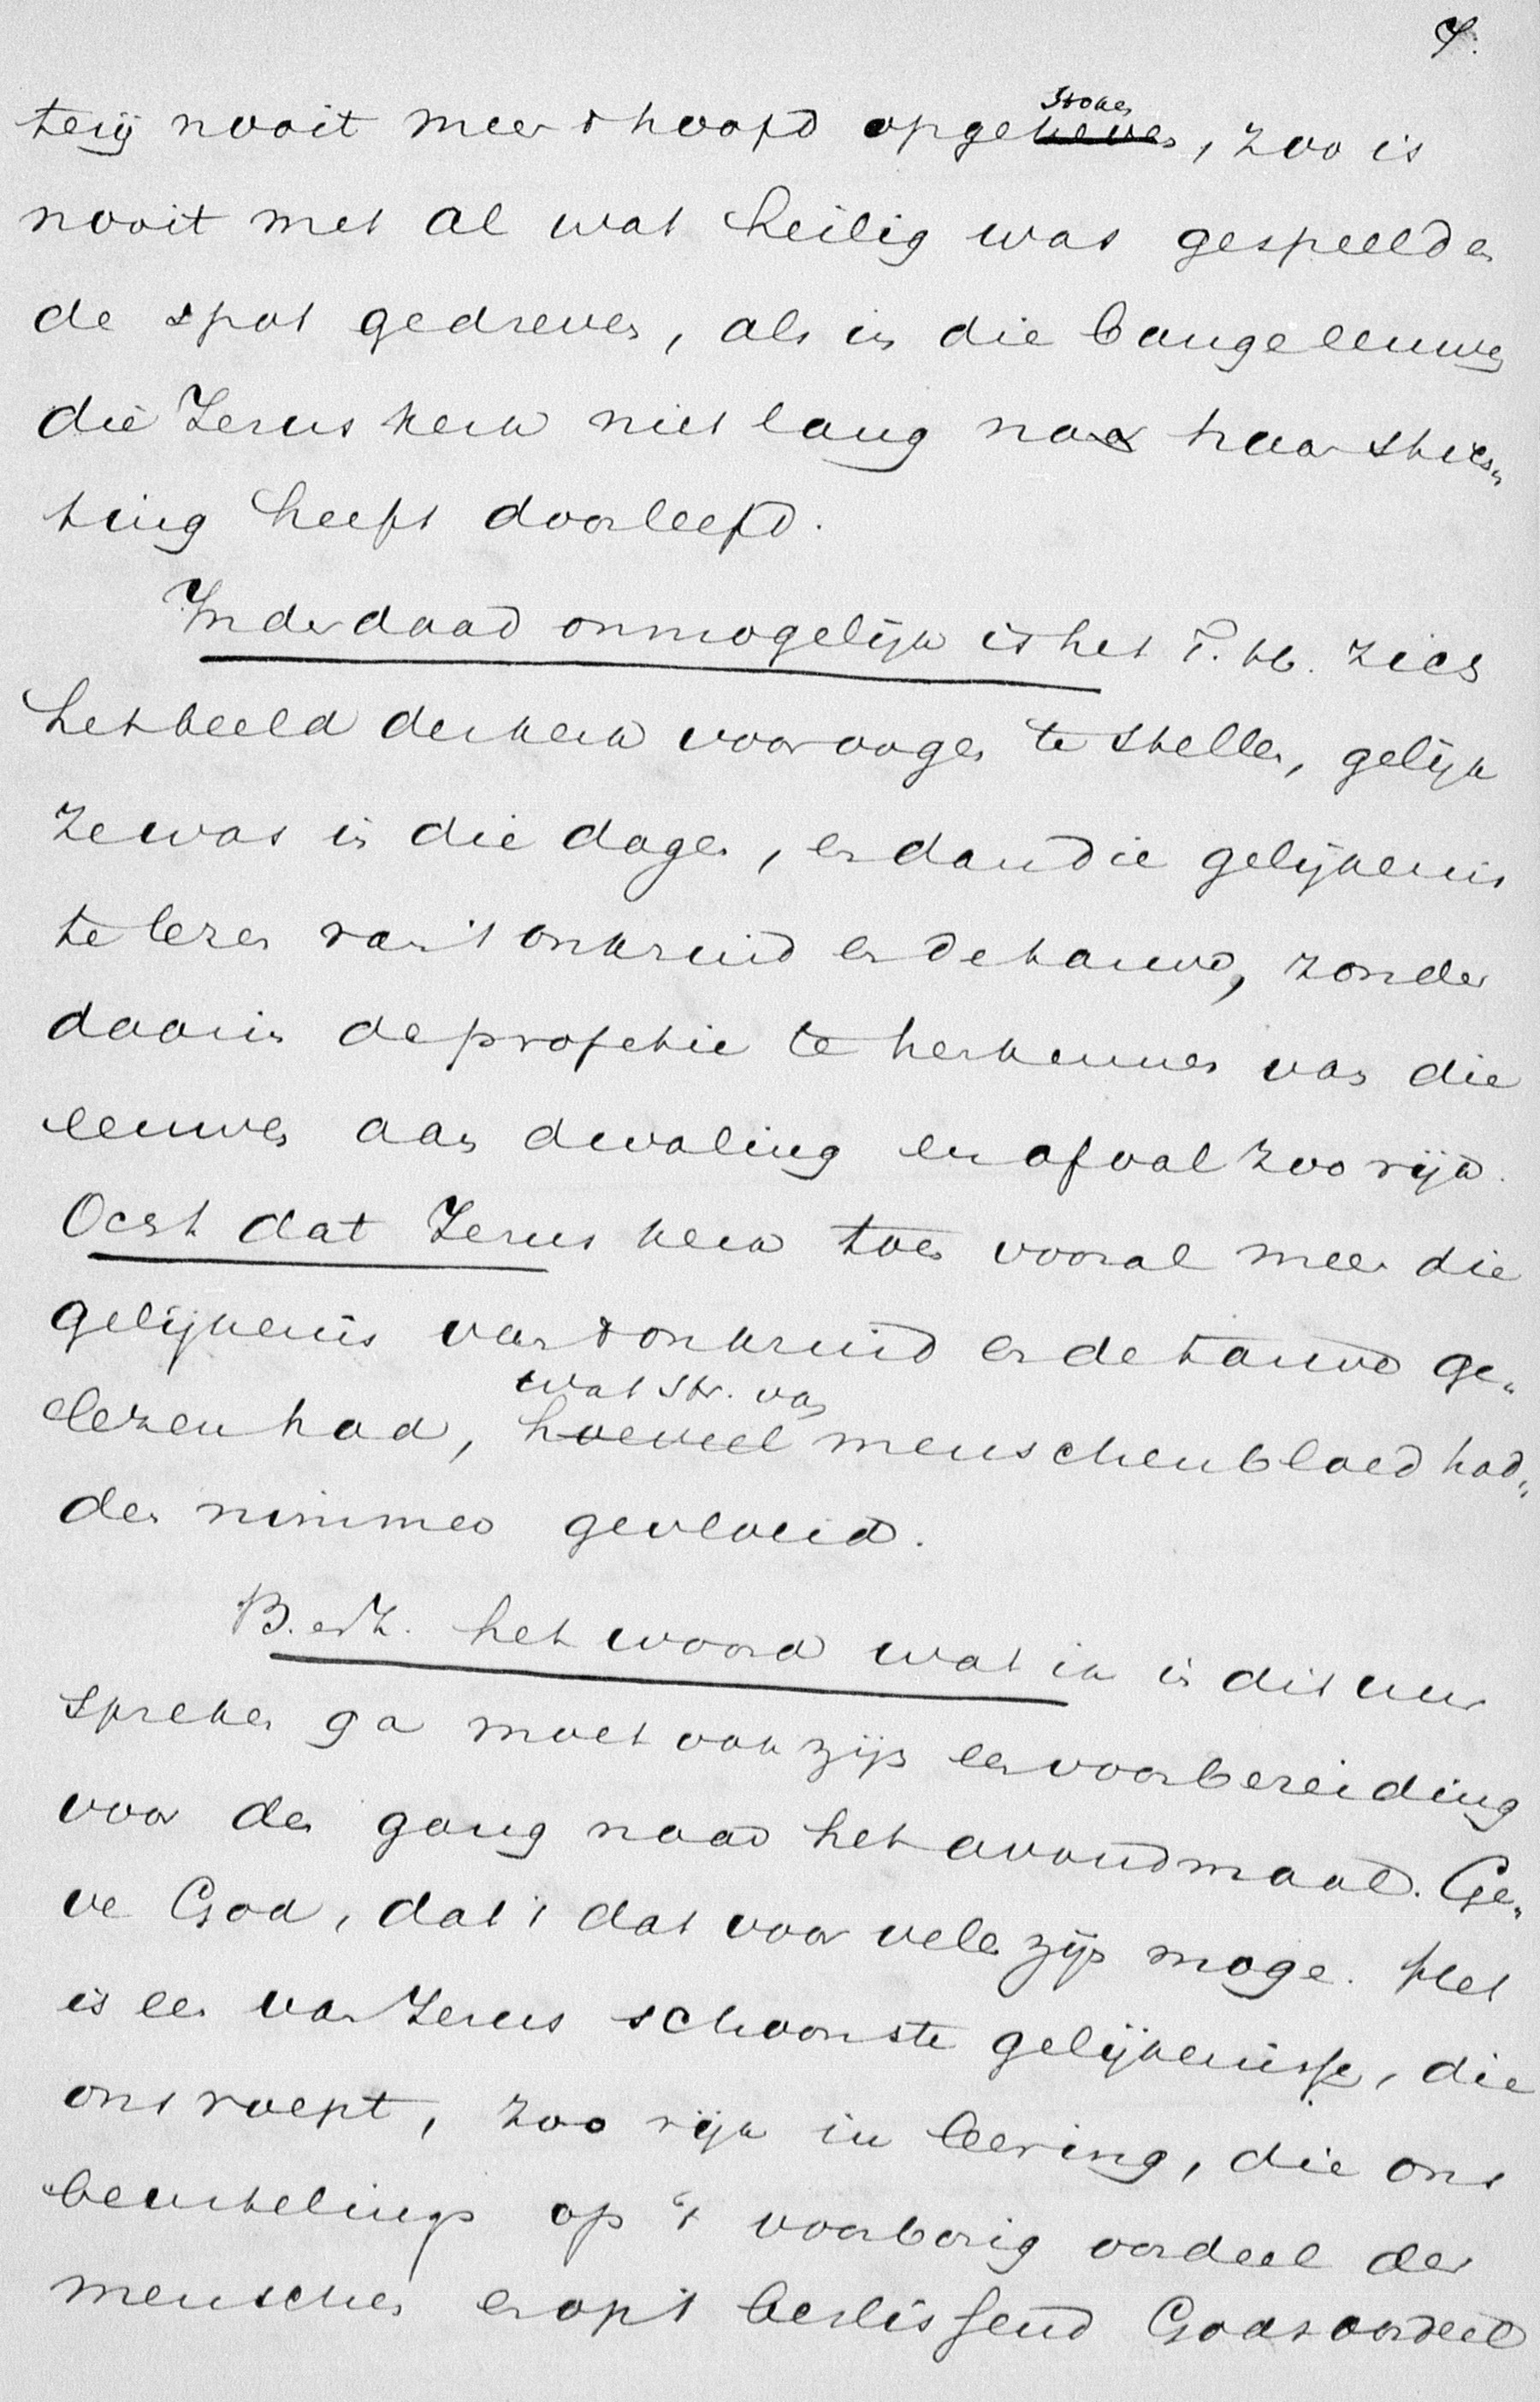 7.
terij nooit meer 't hoofd opgestoken, zoo is
nooit met al wat heilig was gespeeld en
de spot gedreven, als in die bange eeuwen
die Jezus kerk niet lang na haar stich„
ting heeft doorleefd.
Inderdaad onmogelijk is het T. H. zich
het beeld der kerk voor oogen te stellen, gelijk
ze was in die dagen, en dan die gelijkenis
te lezen van 't onkruid en de tarwe, zonder
daarin de profetie te herkennen van die
eeuwen aan dwaling en afval zoo rijk.
Och dat Jezus kerk toen vooral meer die
gelijkenis van 't onkruid en de tarwe ge„
lezen had, wat str. van menschenbloed had„
den nimmer gevloeid.
B. en Z. het woord wat ik in dit uur
spreken ga moet ook zijn een voorbereiding
voor den gang naar het avondmaal. Ge„
ve God, dat 't dat voor velen zijn moge. Het
is een van Jezus schoonste gelijkenissen, die
ons roept, zoo rijk in leering, die ons
beurtelings op 't voorbarig oordeel der
menschen en op 't beslissend Godsoordeel